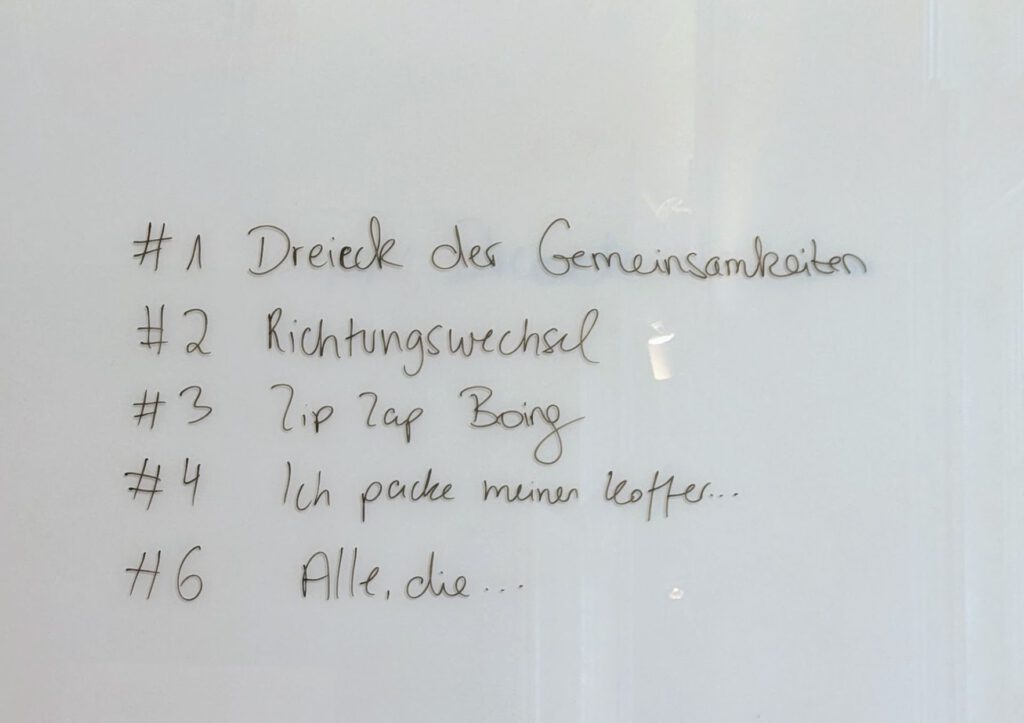 #1 Dreieck der Gemeinsamkeiten
#2 Richtungswechsel
#3 Zip Zap Boing
#4 Ich packe meinen Koffer...
#6 Alle, die...